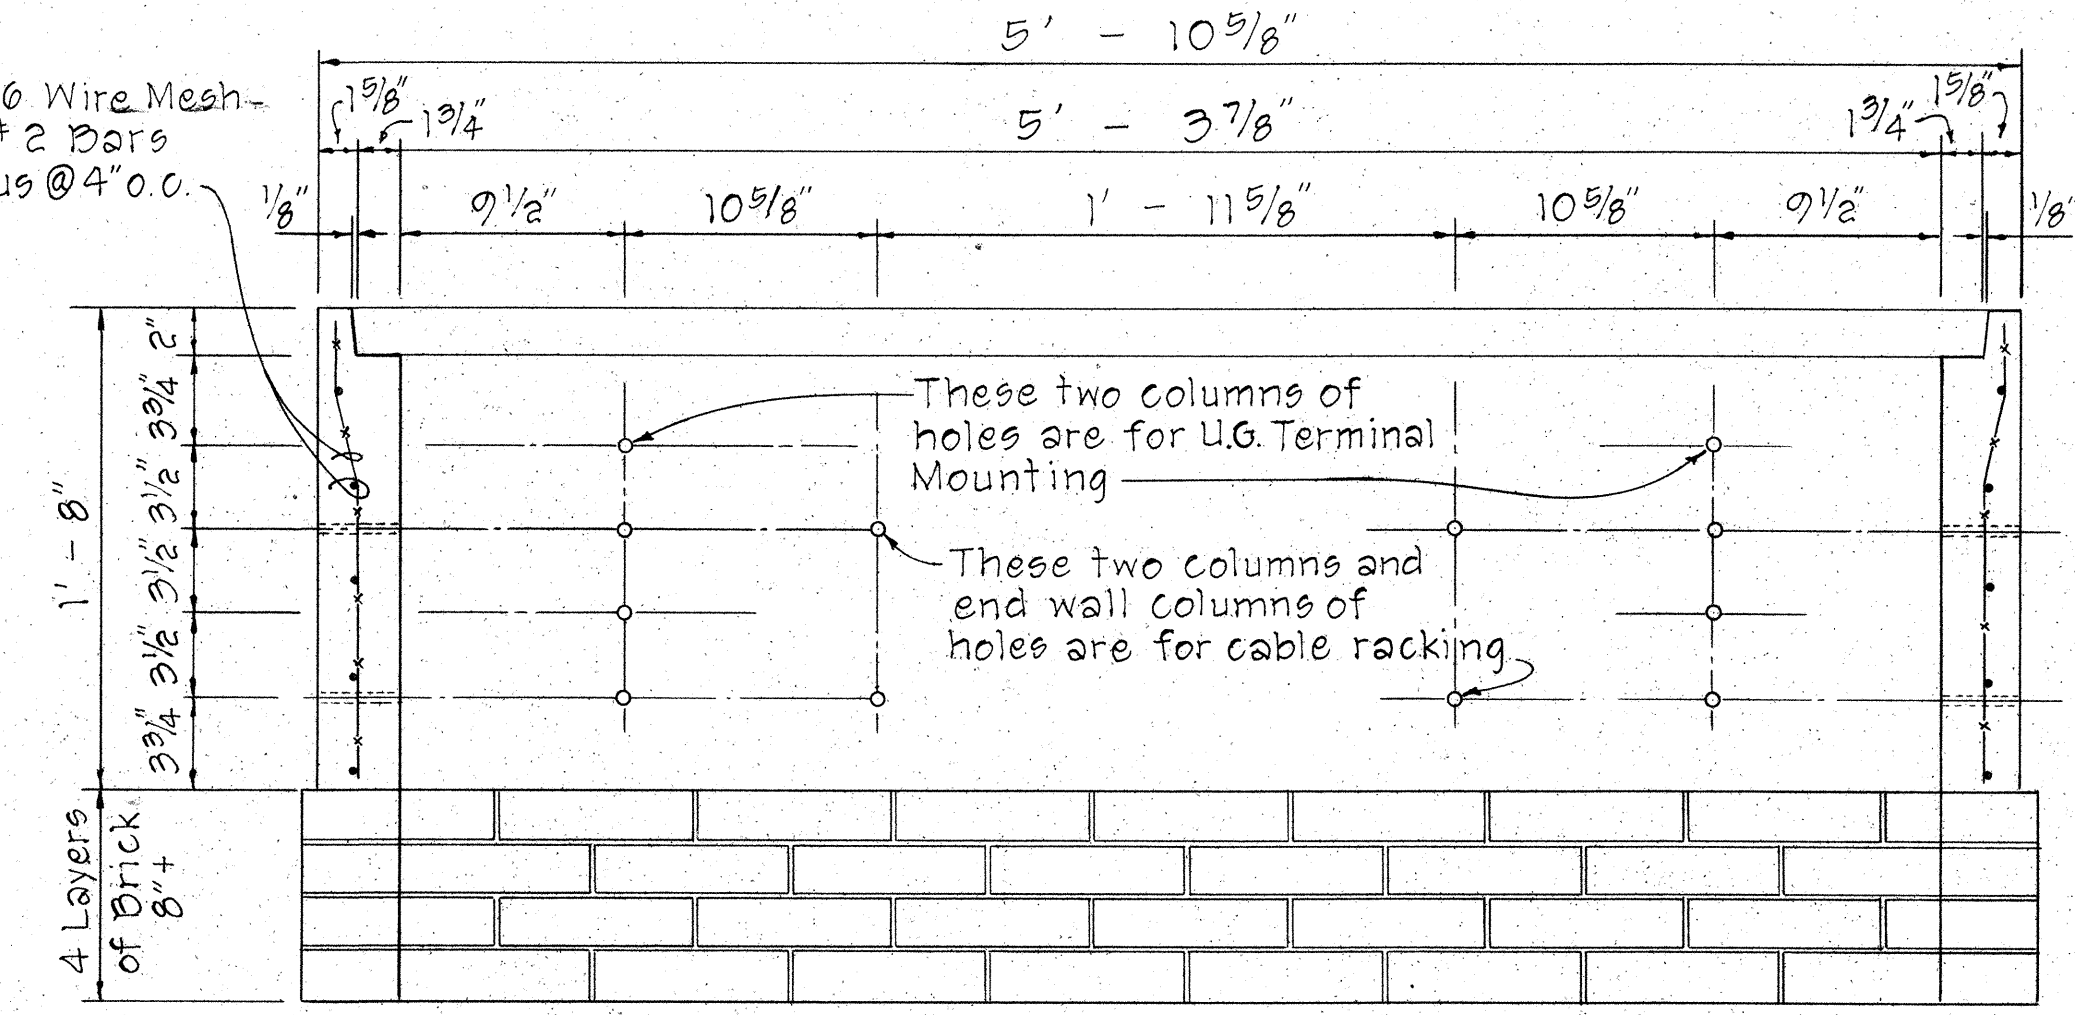 5' - 10 5/8"
6 Wire Mesh-
# 2 Bars
us @ 4" o.c.
1 5/8"
1 3/4"
5' - 3 7/8"
1 3/4"
1 5/8"
1/8"
9 1/2"
10 5/8"
1' - 11 5/8"
10 5/8"
9 1/2"
1/8"
2"
3 3/4"
3 1/2"
3 1/2"
3 1/2"
3 3/4"
1' - 8"
These two columns of
holes are for U.G. Terminal
Mounting
These two columns and
end wall columns of
holes are for cable racking
4 Layers
of Brick
8"+